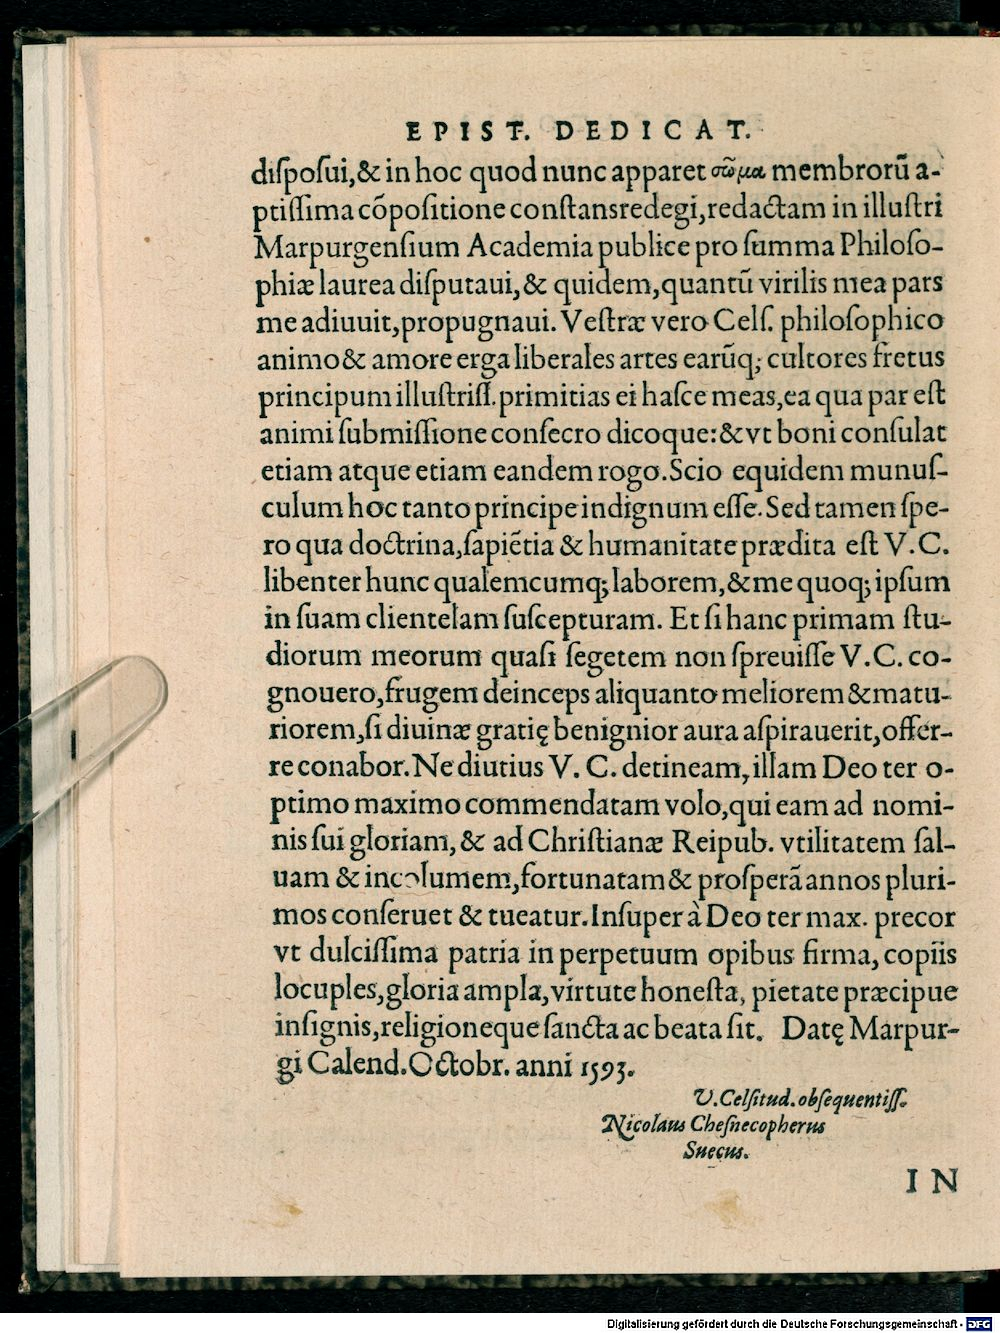 EPIST. DEDICAT.
disposui,& in hoc quod nunc apparet σῶμα membrorū a-
ptissima cōpositione constansredegi,redactam in illustri
Marpurgensium Academia publice pro summa Philoso-
phiæ laurea disputaui,& quidem,quantū virilis mea pars
me adiuuit,propugnaui. Vestræ vero Cels. philosophico
animo & amore erga liberales artes earūq; cultores fretus
principum illustriss. primitias ei hasce meas,ea qua par est
animi submissione consecro dicoque:& vt boni consulat
etiam atque etiam eandem rogo.Scio equidem munus-
culum hoc tanto principe indignum esse. Sed tamen spe-
ro qua doctrina,sapiētia & humanitate prædita est V.C.
libenter hunc qualemcumq; laborem,& me quoq; ipsum
in suam clientelam suscepturam. Et si hanc primam stu-
diorum meorum quasi segetem non spreuisse V.C. co-
gnouero,frugem deinceps aliquanto meliorem & matu-
riorem,si diuinæ gratię benignior aura aspirauerit,offer-
re conabor. Ne diutius V. C. detineam, illam Deo ter o-
ptimo maximo commendatam volo,qui eam ad nomi-
nis sui gloriam, & ad Christianæ Reipub. vtilitatem sal-
uam & incolumem,fortunatam & prosperā annos pluri-
mos conseruet & tueatur.Insuper à Deo ter max. precor
vt dulcissima patria in perpetuum opibus firma, copiis
locuples,gloria ampla,virtute honesta, pietate præcipue
insignis,religioneque sancta ac beata sit. Datę Marpur-
gi Calend.Octobr. anni 1593.
V.Celsitud.obsequentiss.
Nicolaus Chesnecopherus
Suecus.
IN
Digitalisierung gefördert durch die Deutsche Forschungsgemeinschaft - DFG